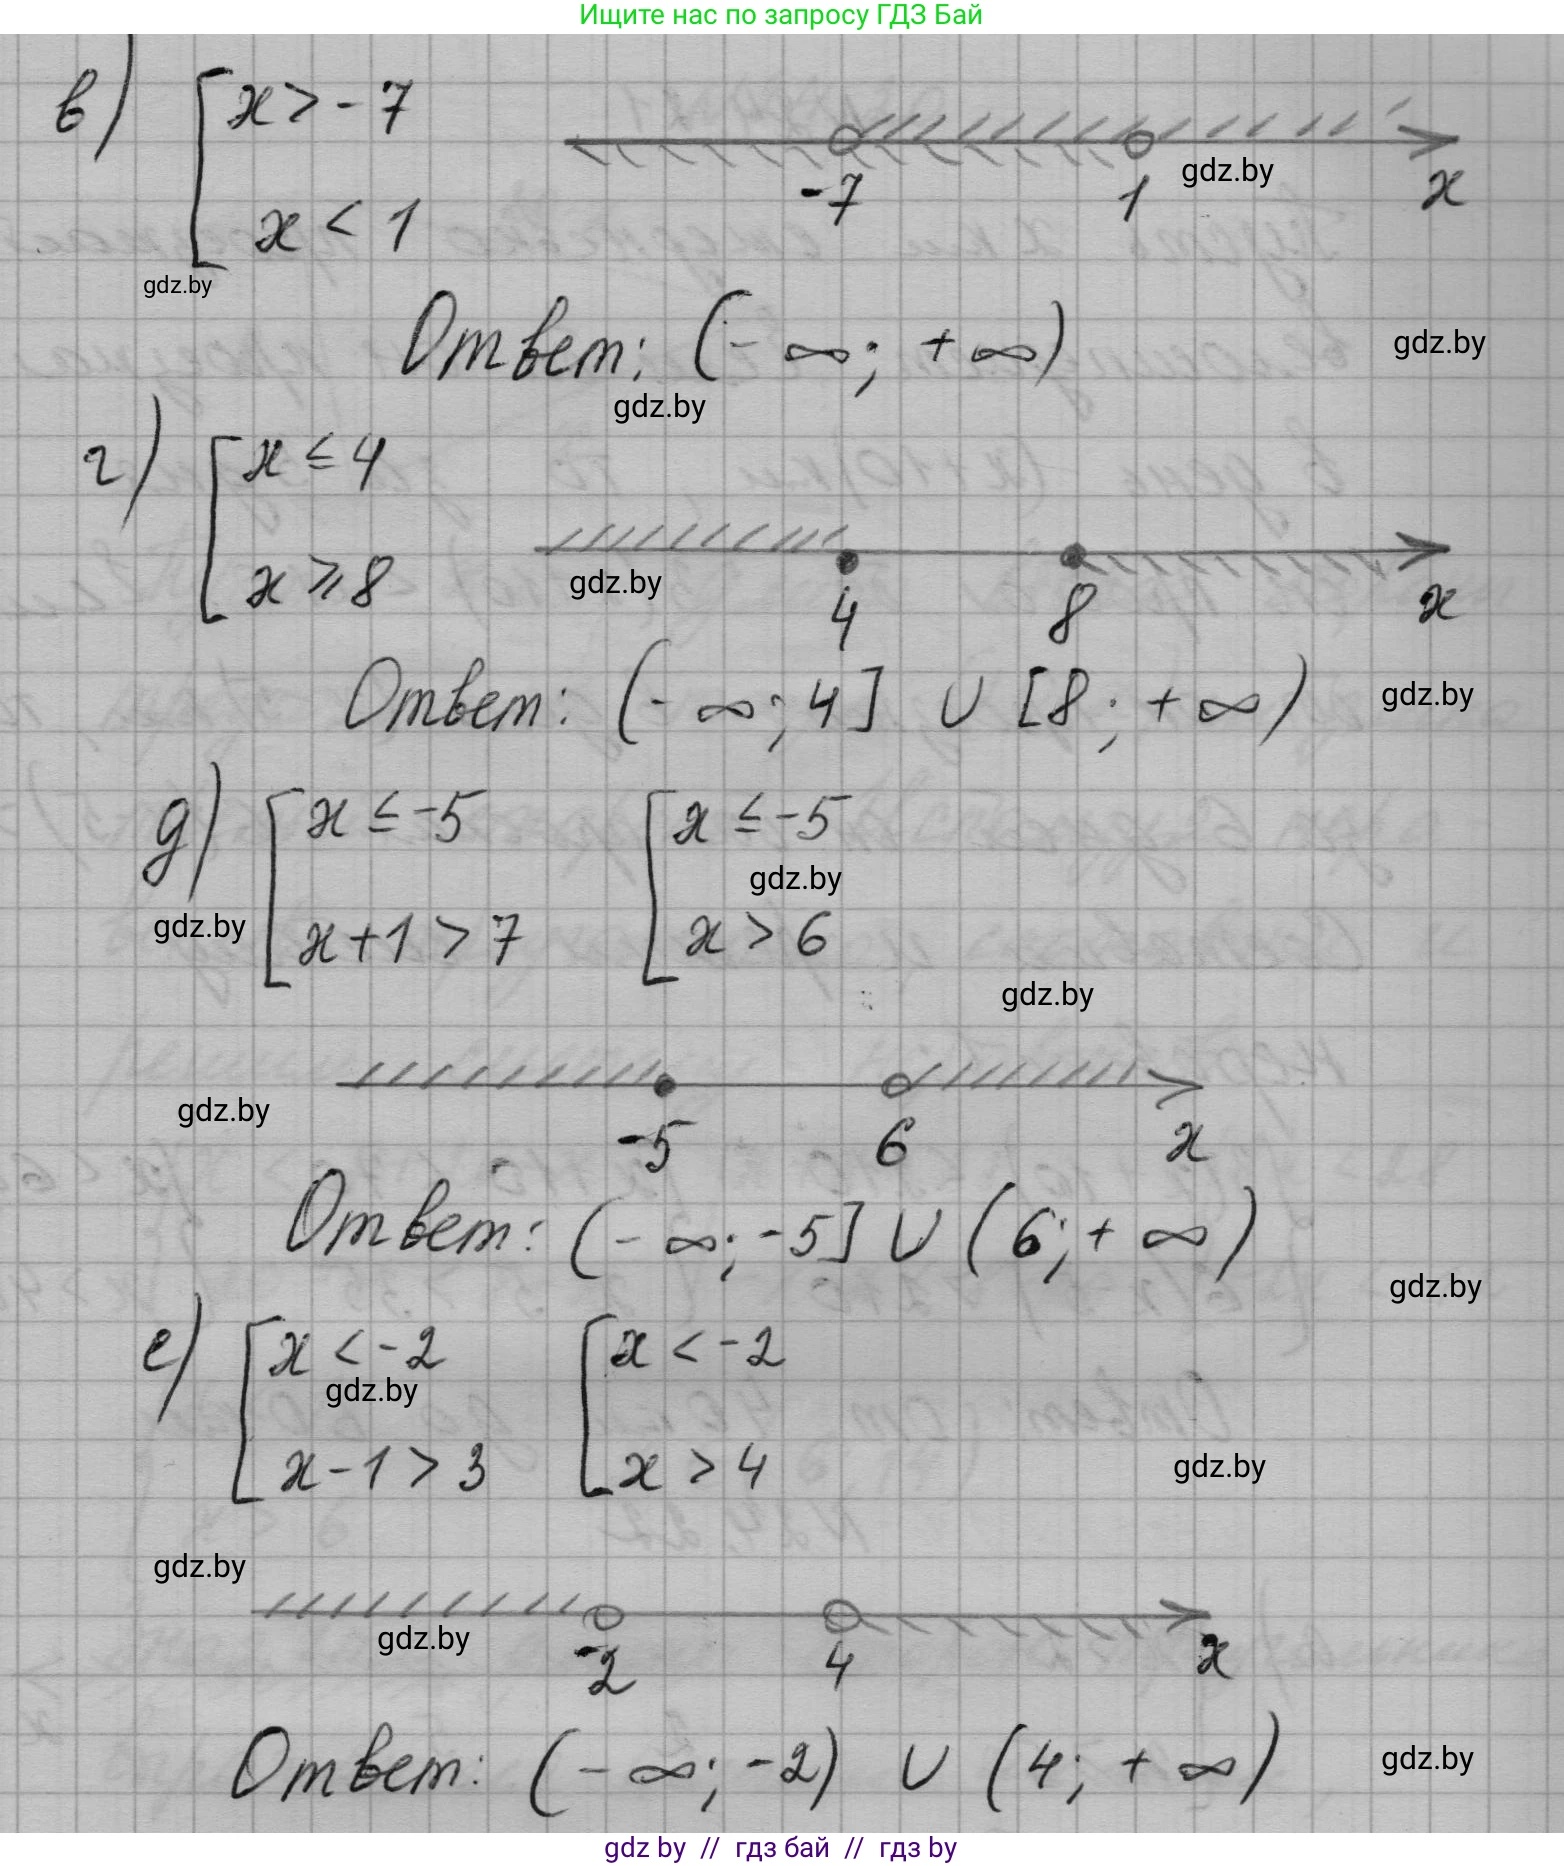 Ищите нас по запросу ГДЗ Бай
в) [ x > -7
x < 1
-7 1 x
gdz.by
gdz.by
Ответ: (-∞; +∞)
gdz.by
gdz.by
г) [ x ≤ 4
x ≥ 8
gdz.by
4 8 x
Ответ: (-∞; 4] ∪ [8; +∞)
gdz.by
д) [ x ≤ -5 [ x ≤ -5
gdz.by
x+1 > 7 x > 6
gdz.by
gdz.by
gdz.by
-5 6 x
Ответ: (-∞; -5] ∪ (6; +∞)
gdz.by
е) [ x < -2 [ x < -2
gdz.by
x-1 > 3 x > 4
gdz.by
gdz.by
gdz.by
-2 4 x
Ответ: (-∞; -2) ∪ (4; +∞)
gdz.by
gdz by // гдз бай // гдз by